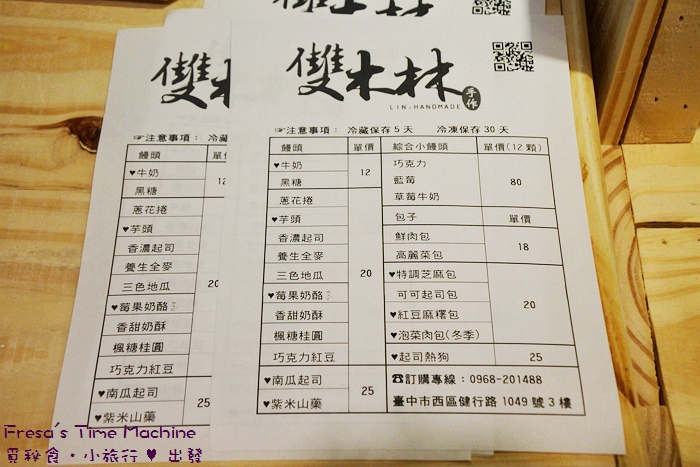 雙木林
LIN-HANDMADE
手作
☞注意事項： 冷藏保存 5 天 冷凍保存 30 天
饅頭 單價 綜合小饅頭 單價(12 顆)
♥牛奶 12 巧克力 80
黑糖 藍莓
蔥花捲 20 草莓牛奶
♥芋頭 包子 單價
香濃起司 鮮肉包 18
養生全麥 高麗菜包
三色地瓜 ♥特調芝麻包 20
♥莓果奶酪 可可起司包
香甜奶酥 ♥紅豆麻糬包
楓糖桂圓 ♥泡菜肉包(冬季)
巧克力紅豆 ♥起司熱狗 25
♥南瓜起司 25 ☎訂購專線：0968-201488
♥紫米山藥 臺中市西區健行路 1049 號 3 樓
雙木
☞注意事項： 冷藏
饅頭 單價
♥牛奶 12
黑糖
蔥花捲
♥芋頭
香濃起司
養生全麥
三色地瓜 20
♥莓果奶酪
香甜奶酥
楓糖桂圓
巧克力紅豆
♥南瓜起司 25
♥紫米山藥
Fresa's Time Machine
覓秘食·小旅行 ♥ 出發